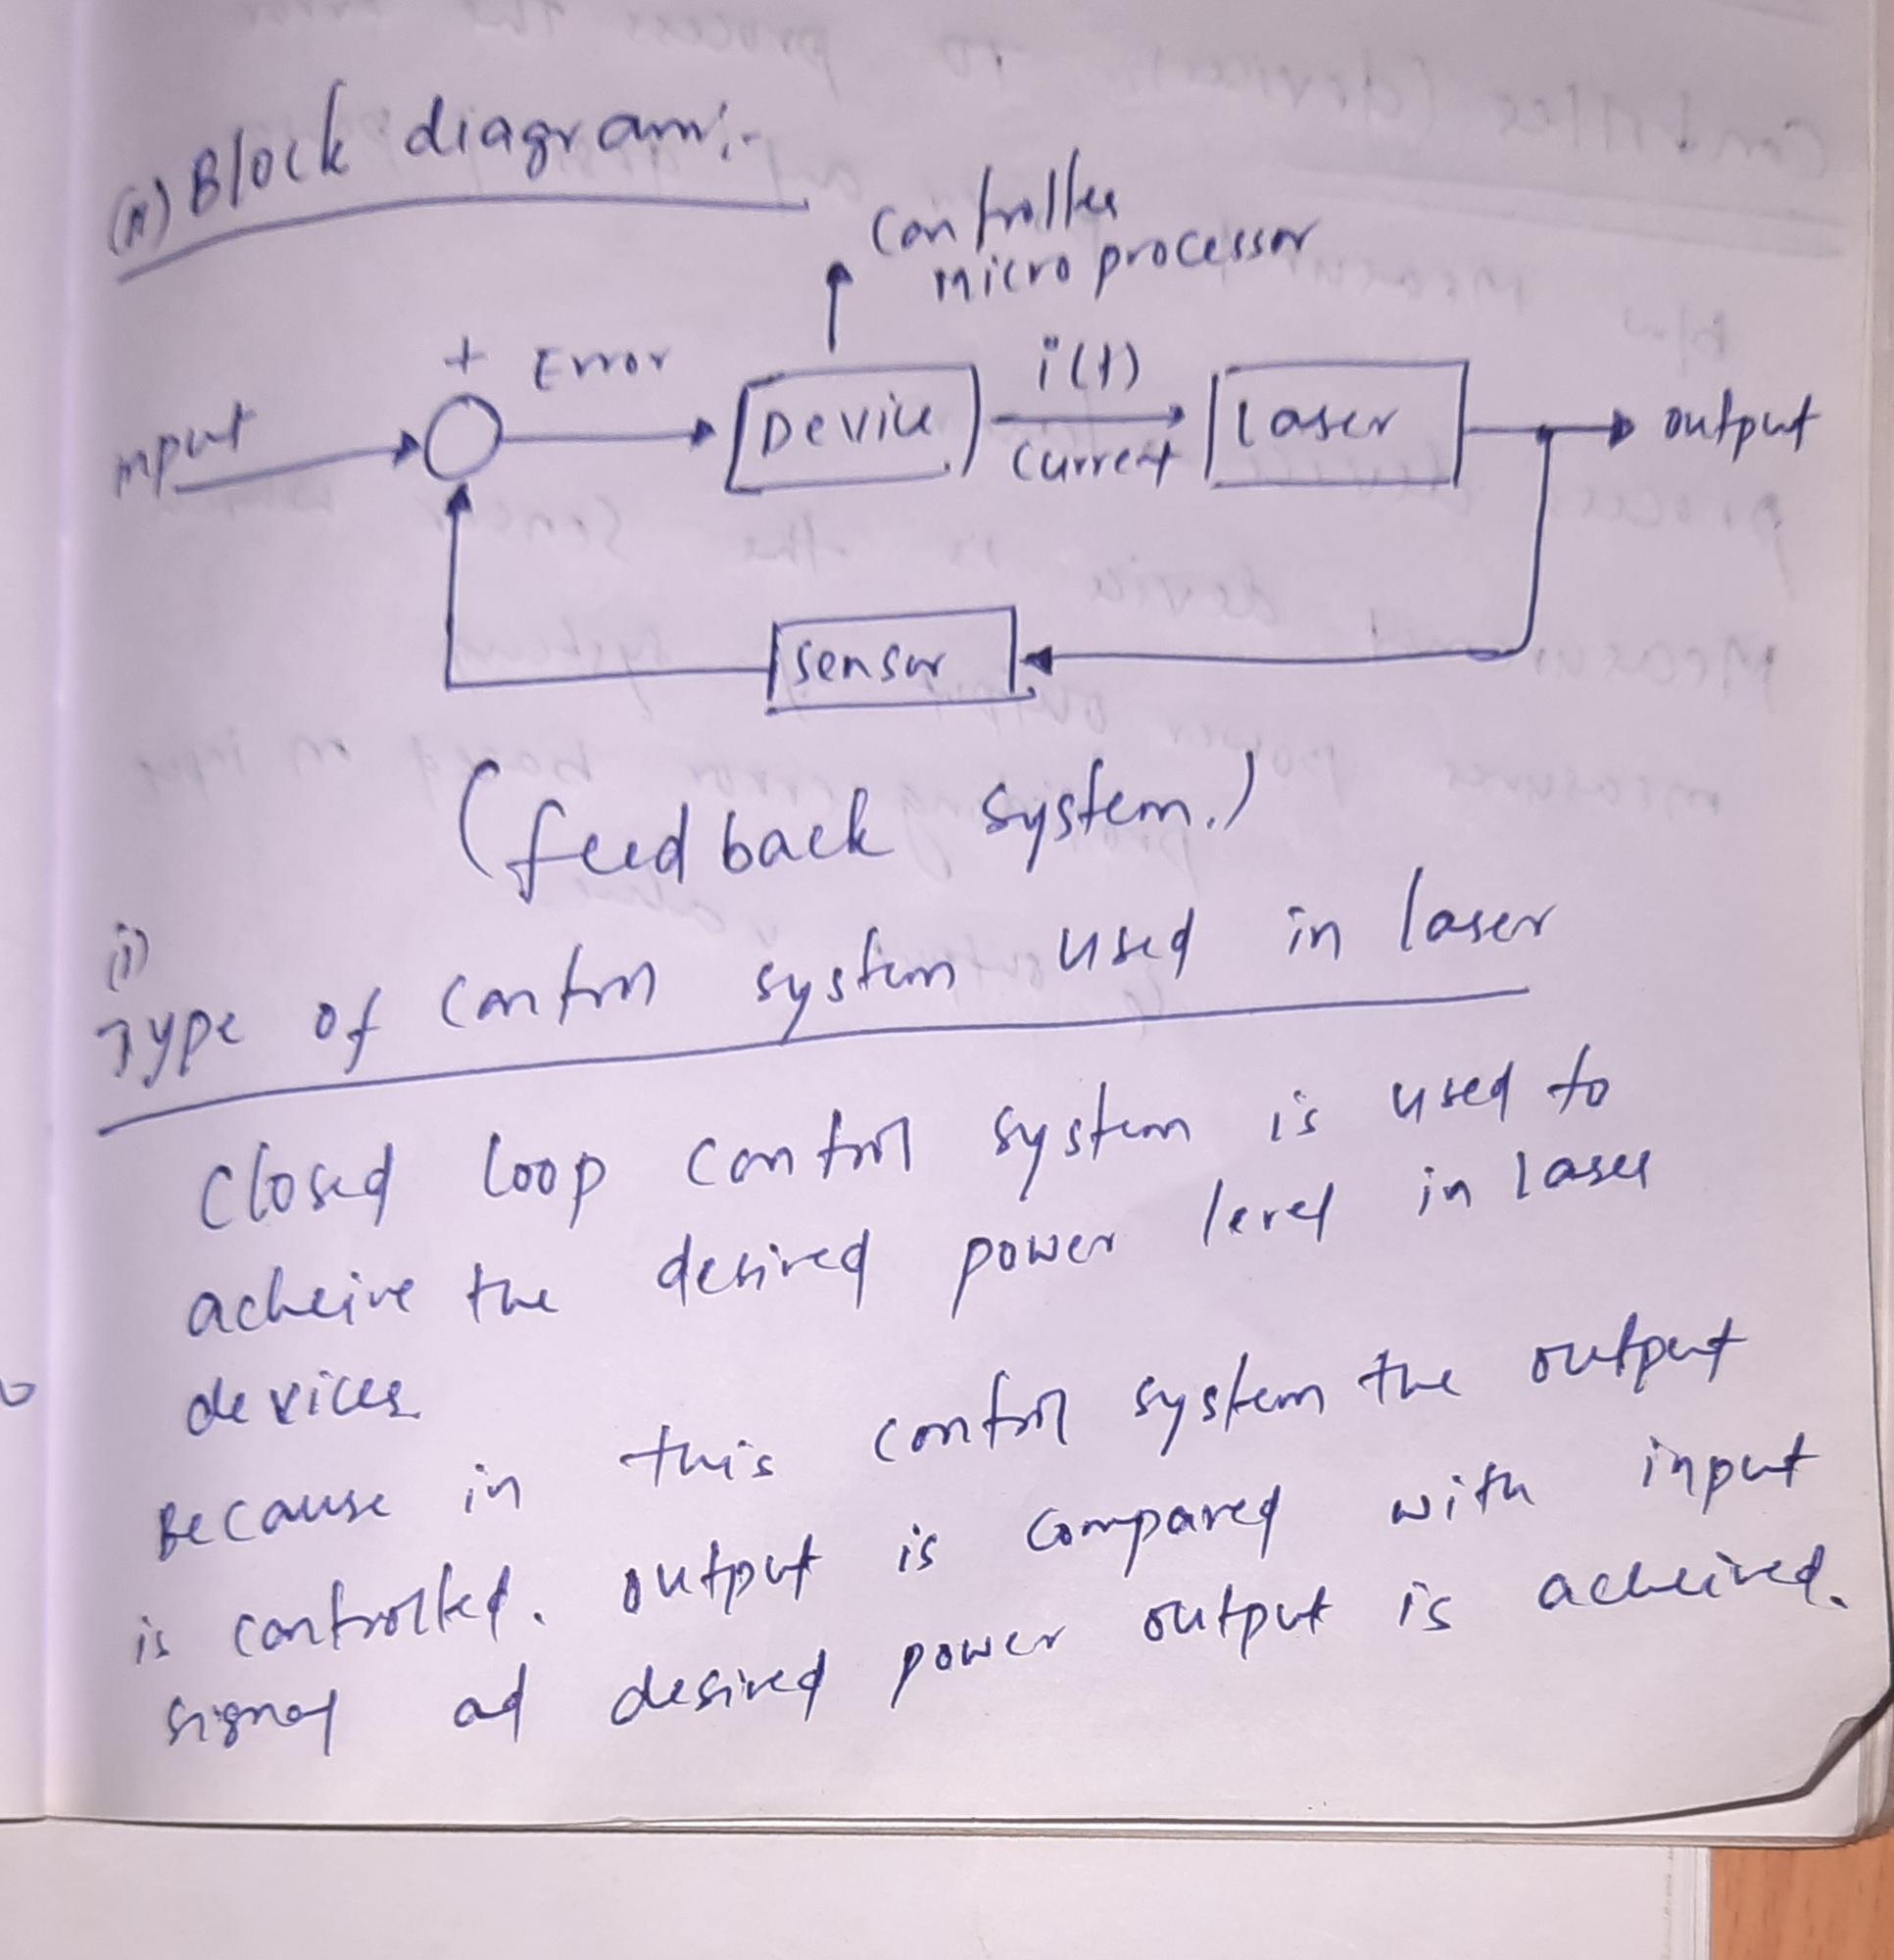 (A) Block diagram:-
controller
micro processor
+ Error
i(t)
input
Device
Laser
output
current
sensor
(feedback system.)
(i)
Type of control system used in laser
Closed loop control system is used to
acheive the desired power level in laser
devices
Because in this control system the output
is controlled. output is compared with input
signal ad desired power output is acheived.